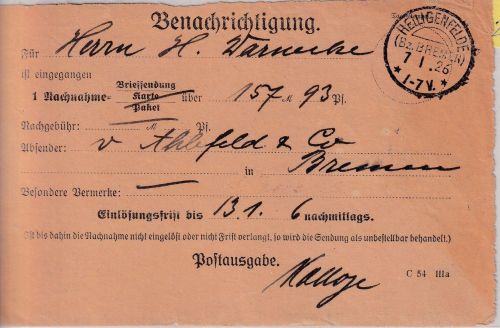 Benachrichtigung.
HEILIGENFELDE
(Bz. BREMEN)
7.1.26
* 1-7V. *
Für Herrn H. Warnecke
ist eingegangen
1 Nachnahme= Briefsendung
Karte
Paket
über 157 M 93 Pf.
Nachgebühr: M Pf.
Absender: v Ahlefeld & Co
in Bremen
Besondere Vermerke:
Einlösungsfrist bis 13 1. 6 nachmittags.
(Ist bis dahin die Nachnahme nicht eingelöst oder nicht Frist verlangt, so wird die Sendung als unbestellbar behandelt.)
Postausgabe.
C 54 IIIa